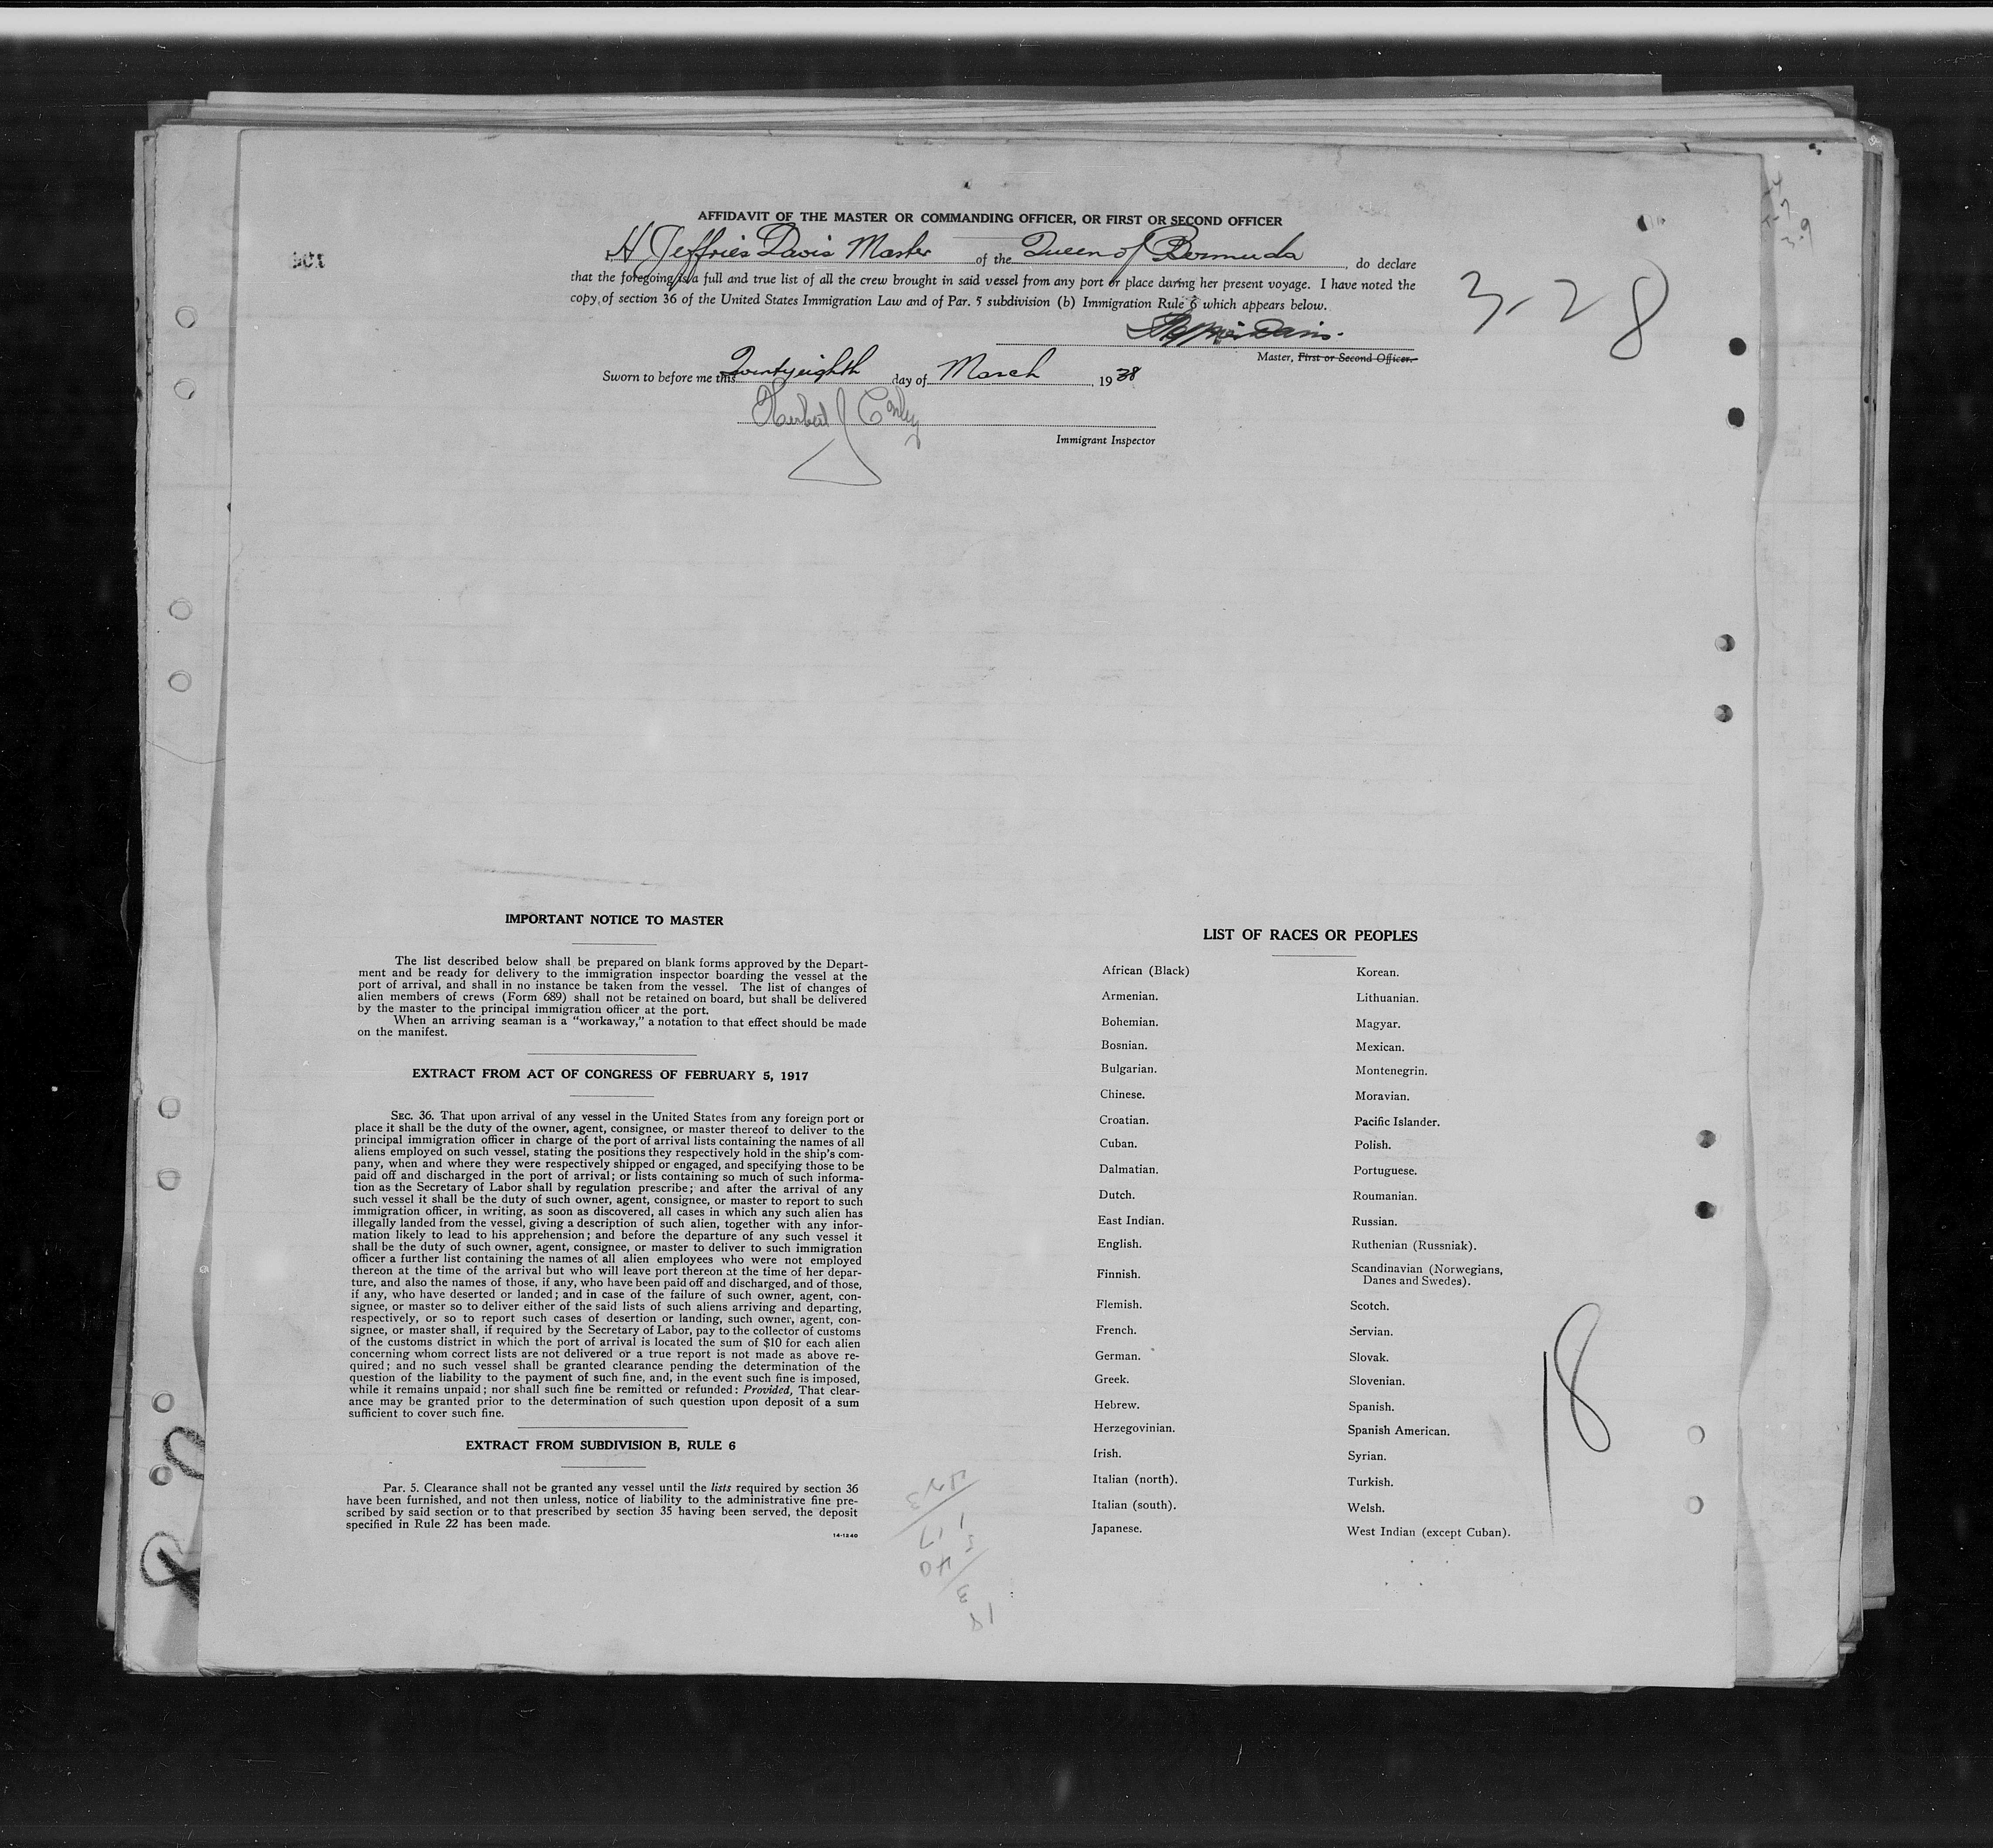 AFFIDAVIT OF THE MASTER OR COMMANDING OFFICER, OR FIRST OR SECOND OFFICER
H Jeffries Davis Master of the Queen of Bermuda, do declare
that the foregoing is a full and true list of all the crew brought in said vessel from any port or place during her present voyage. I have noted the
copy of section 36 of the United States Immigration Law and of Par. 5 subdivision (b) Immigration Rule 6 which appears below.
3-28
Davis.
Master, First or Second Officer.
Sworn to before me this Twentyeighth day of March, 1938
Herbert J Conley
Immigrant Inspector
IMPORTANT NOTICE TO MASTER
The list described below shall be prepared on blank forms approved by the Depart-
ment and be ready for delivery to the immigration inspector boarding the vessel at the
port of arrival, and shall in no instance be taken from the vessel. The list of changes of
alien members of crews (Form 689) shall not be retained on board, but shall be delivered
by the master to the principal immigration officer at the port.
When an arriving seaman is a "workaway," a notation to that effect should be made
on the manifest.
EXTRACT FROM ACT OF CONGRESS OF FEBRUARY 5, 1917
SEC. 36. That upon arrival of any vessel in the United States from any foreign port or
place it shall be the duty of the owner, agent, consignee, or master thereof to deliver to the
principal immigration officer in charge of the port of arrival lists containing the names of all
aliens employed on such vessel, stating the positions they respectively hold in the ship's com-
pany, when and where they were respectively shipped or engaged, and specifying those to be
paid off and discharged in the port of arrival; or lists containing so much of such informa-
tion as the Secretary of Labor shall by regulation prescribe; and after the arrival of any
such vessel it shall be the duty of such owner, agent, consignee, or master to report to such
immigration officer, in writing, as soon as discovered, all cases in which any such alien has
illegally landed from the vessel, giving a description of such alien, together with any infor-
mation likely to lead to his apprehension; and before the departure of any such vessel it
shall be the duty of such owner, agent, consignee, or master to deliver to such immigration
officer a further list containing the names of all alien employees who were not employed
thereon at the time of the arrival but who will leave port thereon at the time of her depar-
ture, and also the names of those, if any, who have been paid off and discharged, and of those,
if any, who have deserted or landed; and in case of the failure of such owner, agent, con-
signee, or master so to deliver either of the said lists of such aliens arriving and departing,
respectively, or so to report such cases of desertion or landing, such owner, agent, con-
signee, or master shall, if required by the Secretary of Labor, pay to the collector of customs
of the customs district in which the port of arrival is located the sum of $10 for each alien
concerning whom correct lists are not delivered or a true report is not made as above re-
quired; and no such vessel shall be granted clearance pending the determination of the
question of the liability to the payment of such fine, and, in the event such fine is imposed,
while it remains unpaid; nor shall such fine be remitted or refunded: Provided, That clear-
ance may be granted prior to the determination of such question upon deposit of a sum
sufficient to cover such fine.
EXTRACT FROM SUBDIVISION B, RULE 6
Par. 5. Clearance shall not be granted any vessel until the lists required by section 36
have been furnished, and not then unless, notice of liability to the administrative fine pre-
scribed by said section or to that prescribed by section 35 having been served, the deposit
specified in Rule 22 has been made.
14-1240
LIST OF RACES OR PEOPLES
African (Black)
Armenian.
Bohemian.
Bosnian.
Bulgarian.
Chinese.
Croatian.
Cuban.
Dalmatian.
Dutch.
East Indian.
English.
Finnish.
Flemish.
French.
German.
Greek.
Hebrew.
Herzegovinian.
Irish.
Italian (north).
Italian (south).
Japanese.
Korean.
Lithuanian.
Magyar.
Mexican.
Montenegrin.
Moravian.
Pacific Islander.
Polish.
Portuguese.
Roumanian.
Russian.
Ruthenian (Russniak).
Scandinavian (Norwegians,
Danes and Swedes).
Scotch.
Servian.
Slovak.
Slovenian.
Spanish.
Spanish American.
Syrian.
Turkish.
Welsh.
West Indian (except Cuban).
18